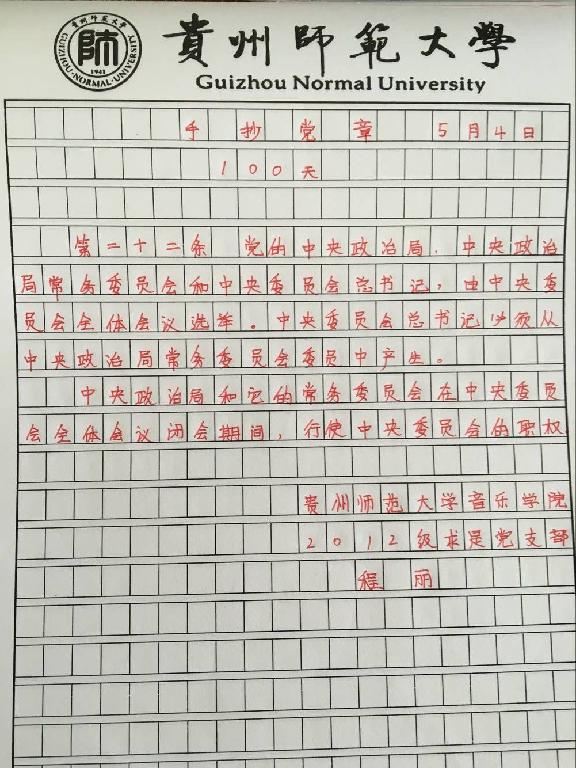 貴州師範大學
GUIZHOU·NORMAL·UNIVERSITY
師
1941
貴州師範大學
Guizhou Normal University
手抄党章 5月4日
100天
第二十二条 党的中央政治局、中央政治
局常务委员会和中央委员会总书记，由中央委
员会全体会议选举。中央委员会总书记必须从
中央政治局常务委员会委员中产生。
中央政治局和它的常务委员会在中央委员
会全体会议闭会期间，行使中央委员会的职权
贵州师范大学音乐学院
2012级求是党支部
程丽